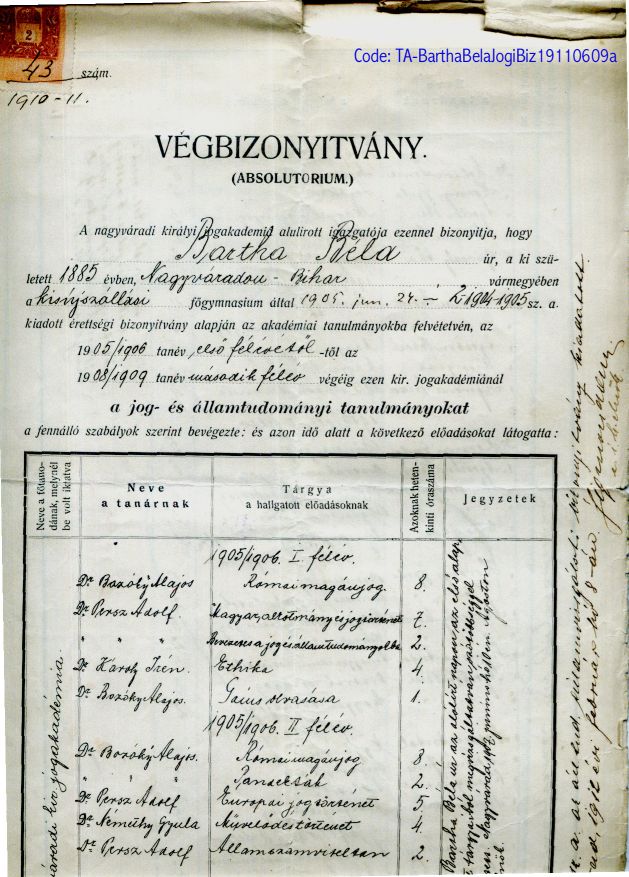 Code: TA-BarthaBelaJogiBiz19110609a
2
43 szám.
1910-11.
VÉGBIZONYITVÁNY.
(ABSOLUTORIUM.)
A nagyváradi királyi jogakadémia alulirott igazgatója ezennel bizonyitja, hogy
Bartha Béla úr, a ki szü-
letett 1885 évben, Nagyváradon - Bihar vármegyében
a kisújszállási főgymnasium által 1905. jun. 24. 1904-1905 sz. a.
kiadott érettségi bizonyitvány alapján az akadémiai tanulmányokba felvétetvén, az
1905/1906 tanév első félévétől -től az
1908/1909 tanév második félév végéig ezen kir. jogakadémiánál
a jog- és államtudományi tanulmányokat
a fennálló szabályok szerint bevégezte: és azon idő alatt a következő előadásokat látogatta:
Neve a főtano-
dának, melynél
be volt iktatva
Neve
a tanárnak
Tárgya
a hallgatott előadásoknak
Azoknak heten-
kinti óraszáma
Jegyzetek
1905/1906. I. félév.
Dr Bozóky Alajos Római magánjog. 8.
Dr Persz Adolf Magyar alkotmány és jogtörténet 7.
" " " Bevezetés a jog és államtudományokba 2.
Dr Károly Irén Ethika 4.
Dr Bozóky Alajos. Gaius olvasása 1.
1905/1906. II félév.
Dr Bozóky Alajos. Római magánjog 8.
" " " Pandekták 2.
Dr Persz Adolf Európai jogtörténet 5
Dr Némethy Gyula Művelődéstörténet 4.
Dr Persz Adolf Államszámviteltan 2.
áradi kir. jogakadémia.
Bartha Béla úr az alólirt napon az első alap